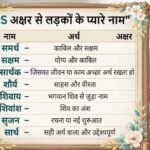 "S अक्षर से लड़कों के प्यारे नाम"
नाम अर्थ अक्षर
समर्थ - काबिल और सक्षम
सक्षम - योग्य और काबिल
सार्थक - जिसका जीवन या काम अच्छा अर्थ रखता हो
शौर्य - साहस और वीरता
शिवाय - भगवान शिव से जुड़ा नाम
शिवांश - शिव का अंश
सृजन - रचना या नई शुरुआत
सार्थ - सही अर्थ वाला और उद्देश्यपूर्ण